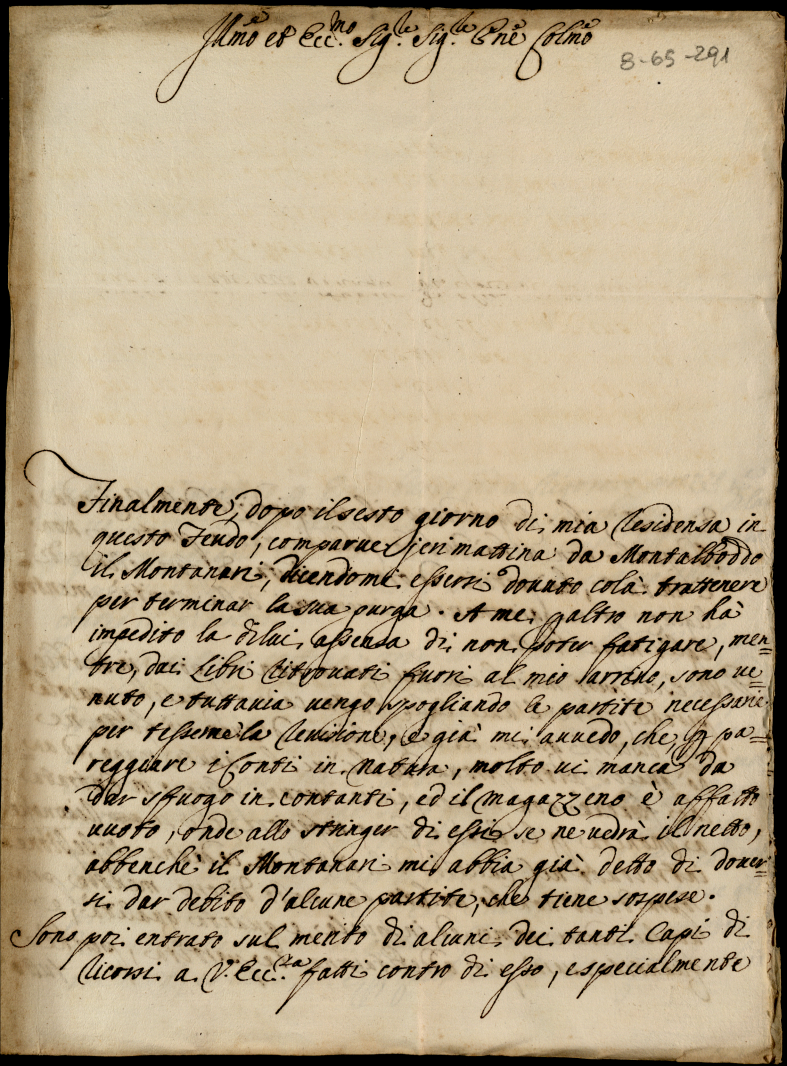 Illmo et Ecc.mo Sig.le Sig.le Pne Colmo
8-65-291
Finalmente, dopo il sesto giorno di mia Residensa in
questo Feudo, comparve jeri mattina da Montalboddo
il Montanari, dicendomi essersi dovuto colà trattenere
per terminar la sua purga. A me p altro non hà
impedito la di lui assensa di non poter fatigare, men=
tre, dai Libri ritrovati fuori al mio arrivo, sono ve=
nuto, e tuttavia vengo spogliando le partite necessarie
per tesserne la revisione, e già mi avvedo, che p pa=
reggiare i Conti in natura, molto vi manca da
dar sfuogo in contanti, ed il Magazzeno è affatto
vuoto, onde allo stringer di essi se ne vedrà il netto,
abbenchè il Montanari mi abbia già detto di dover=
si dar debito d'alcune partite, che tiene sospese.
Sono poi entrato sul merito di alcuni dei tanti Capi di
ricorsi a V. Ecc.za fatti contro di esso, e specialmente